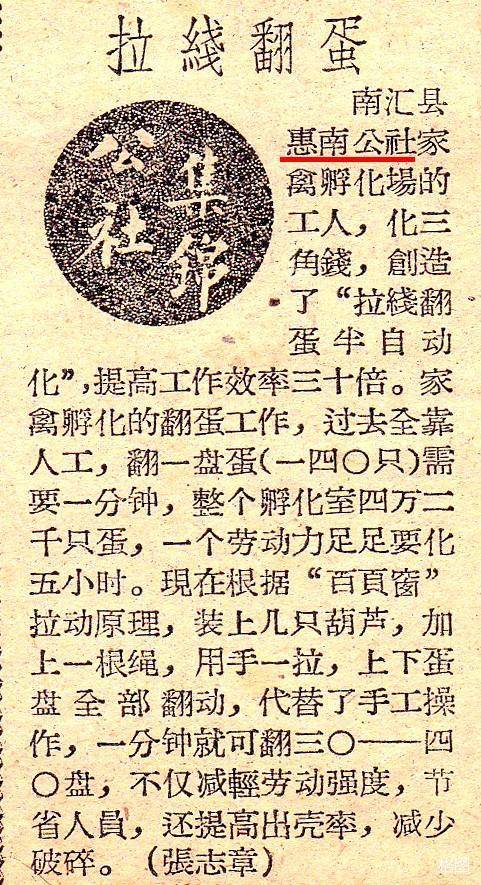 拉綫翻蛋
公社
集錦
南汇县
惠南公社家
禽孵化場的
工人，化三
角錢，創造
了“拉綫翻
蛋半自动
化”，提高工作效率三十倍。家
禽孵化的翻蛋工作，过去全靠
人工，翻一盘蛋(一四〇只)需
要一分钟，整个孵化室四万二
千只蛋，一个劳动力足足要化
五小时。現在根据“百頁窗”
拉动原理，装上几只葫芦，加
上一根绳，用手一拉，上下蛋
盘全部翻动，代替了手工操
作，一分钟就可翻三〇——四
〇盘，不仅减輕劳动强度，节
省人員，还提高出壳率，减少
破碎。(張志章)